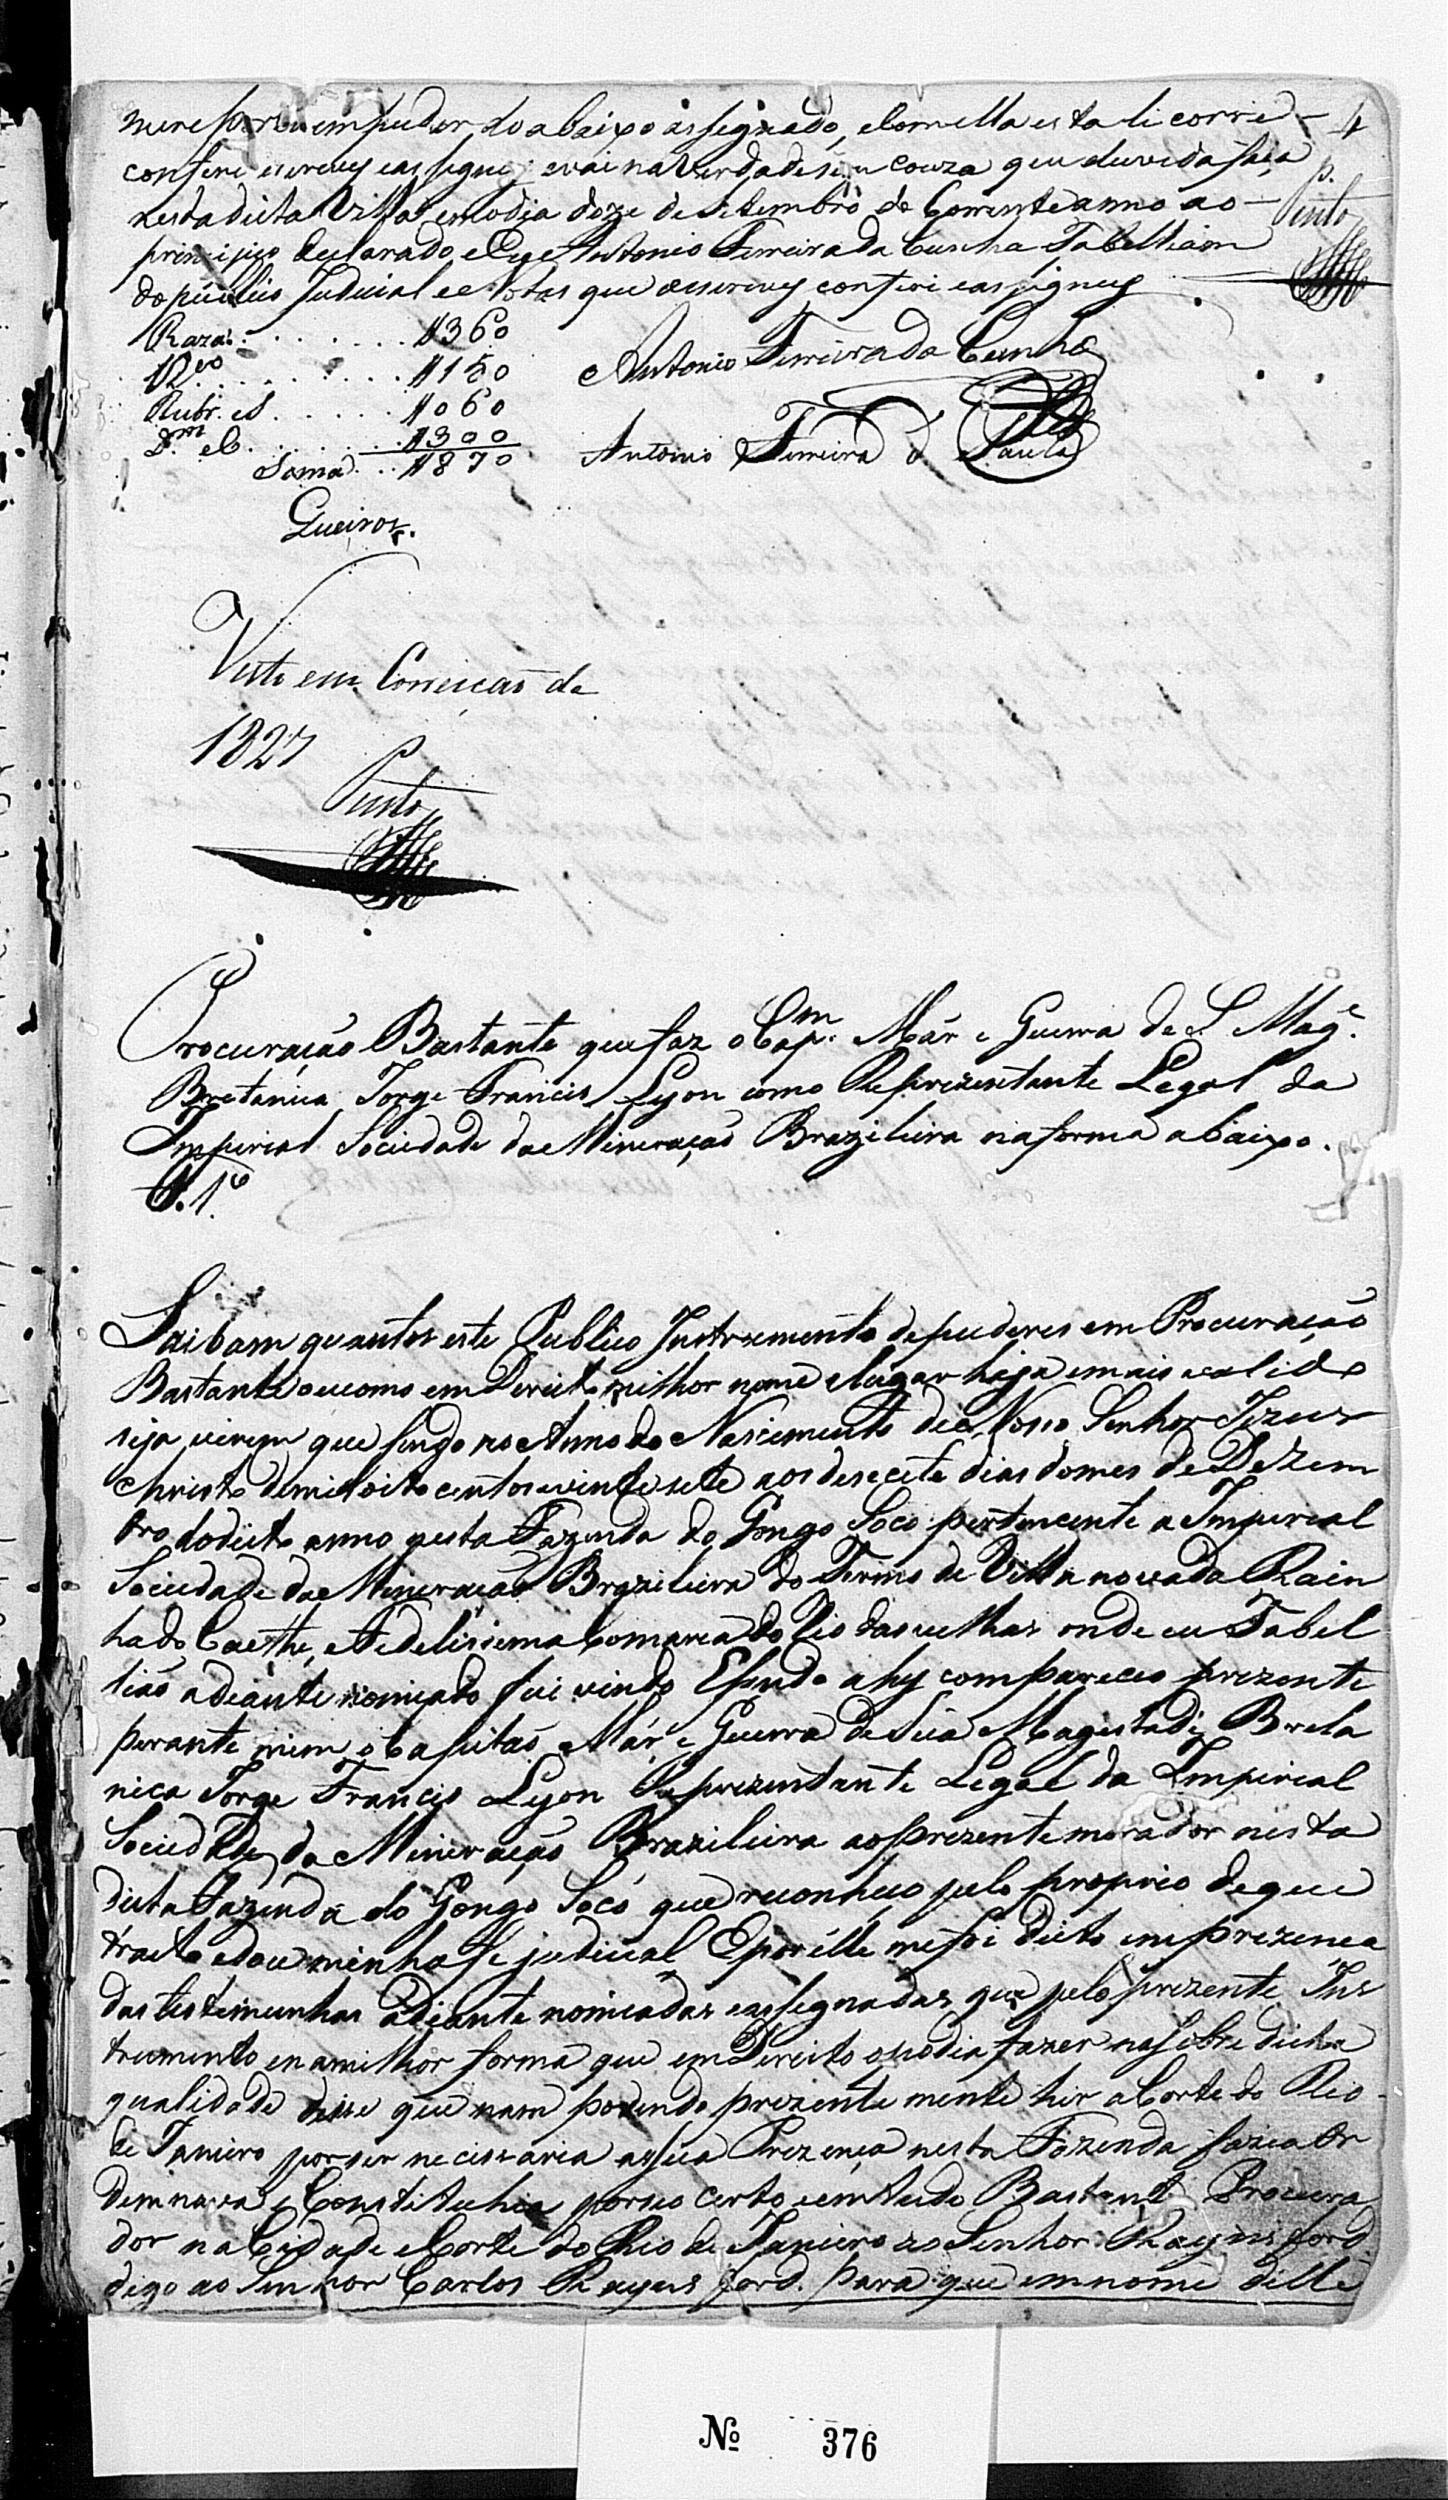 em puder do abaixo assignado, e com ella esta li corri
4
conferi escrevy e assigney e vai na verdade sem couza que duvida faça
P.
nesta dicta Villa em o dia doze de Setembro de Corrente anno ao
Pinto
principio declarado e Eu Antonio Ferreira da Cunha Tabelliam
do publico Judicial e Notas que o escrevy conferi e assigney
Raza. . . . . . . . $360
. . . . . . . . $150
Antonio Ferreira da Cunha
Rubr. . . . . . $060
. . . . . . $300
Soma . . $870
Antonio Ferreira d Paula
Queiroz.
Visto em Correiçaõ de
1827
Pinto
Procuração Bastante que faz o Capm. Már e Guerra de S. Mage.
Bretanica Jorge Francis Lyon como Reprezentante Legal da
Imperial Sociedade da Mineraçaõ Brazileira na forma abaixo.
Saibam quantos este Publico Instrumento de puderes em Procuração
Bastante ou como em Direito milhor nome e lugar haja e mais valido
seja virem que sendo no Anno do Nascimento de Nosso Senhor Jezus
Christo de mil oito centos e vinte sete aos desecete dias do mes de Dezem
bro do dicto anno nesta Fazenda do Gongo Soco pertencente a Imperial
Sociedade da Mineraçaõ Brazileira do Termo de Villa nova da Rain
ha do Caethe, e Fedelissema Comarca do Rio das velhas onde eu Tabel
liaõ adeante nomeado fui vindo E sendo ahy compareceo prezente
perante mim o Capitaõ Már e Guerra de Sua Magestade Breta
nica Jorge Francis Lyon Reprezentante Legal da Imperial
Sociedade da Mineração Brazileira ao prezente morador nesta
dicta Fazenda do Gongo Soco que reconheço pelo proprio de que
tracto e dou minha fe judicial E por élle me foi dicto em prezença
das testemunhas adeante nomeadas e assegnadas que pelo prezente Ins
trumento e na milhor forma que em Direito o podia fazer na sobre dicta
qualidade disse que nam podendo prezente mente hir a Corte do Rio
de Janeiro por ser necessaria a sua Prezença nesta Fazenda fazia Or
denava e Constituhia por seo certo e em tudo Bastante Procura
dor na Cidade e Corte do Rio de Janeiro ao Senhor Raynsford
digo ao Senhor Carlos Raynsford para que em nome délle
Nº 376